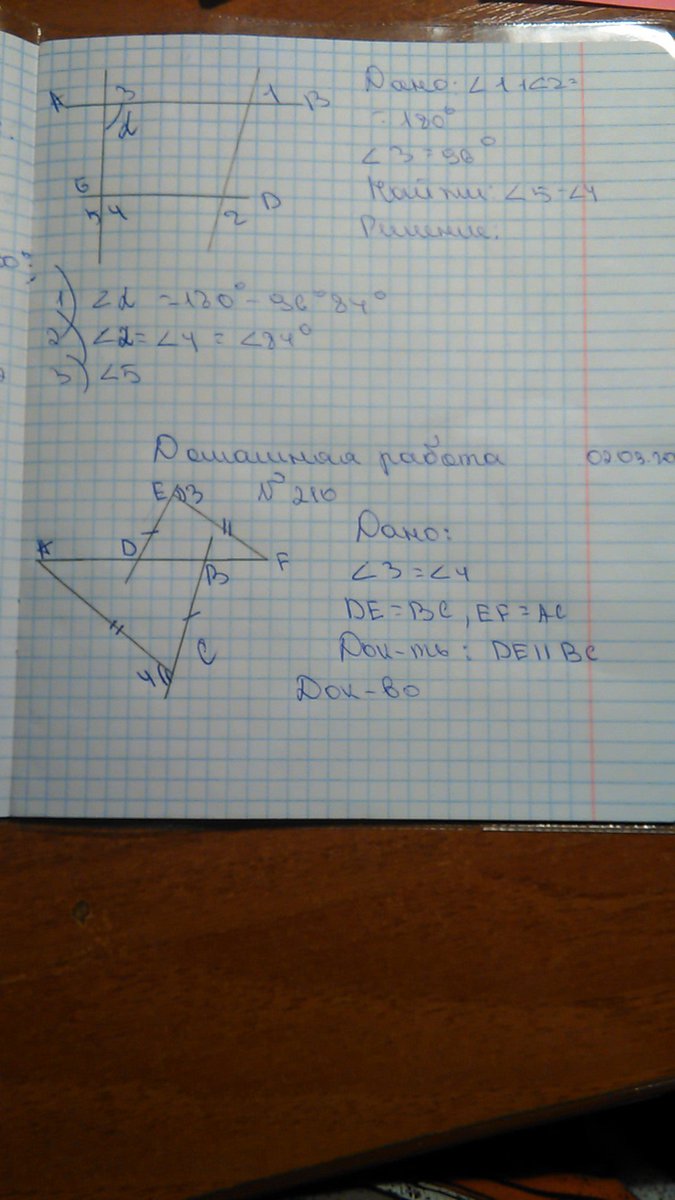 A 3 1 B
α
Дано: ∠1+∠2=
= 180°
∠3=96°
6 D
5 4 2
Найти: ∠5-∠4
Решение:
1) ∠α =180°-96°84°
2) ∠α=∠4=∠84°
3) ∠5
Домашная работа 02.03.20
E 3 № 210
A D B F
C
4
Дано:
∠3=∠4
DE=BC, EF=AC
Док-ть: DE||BC
Док-во